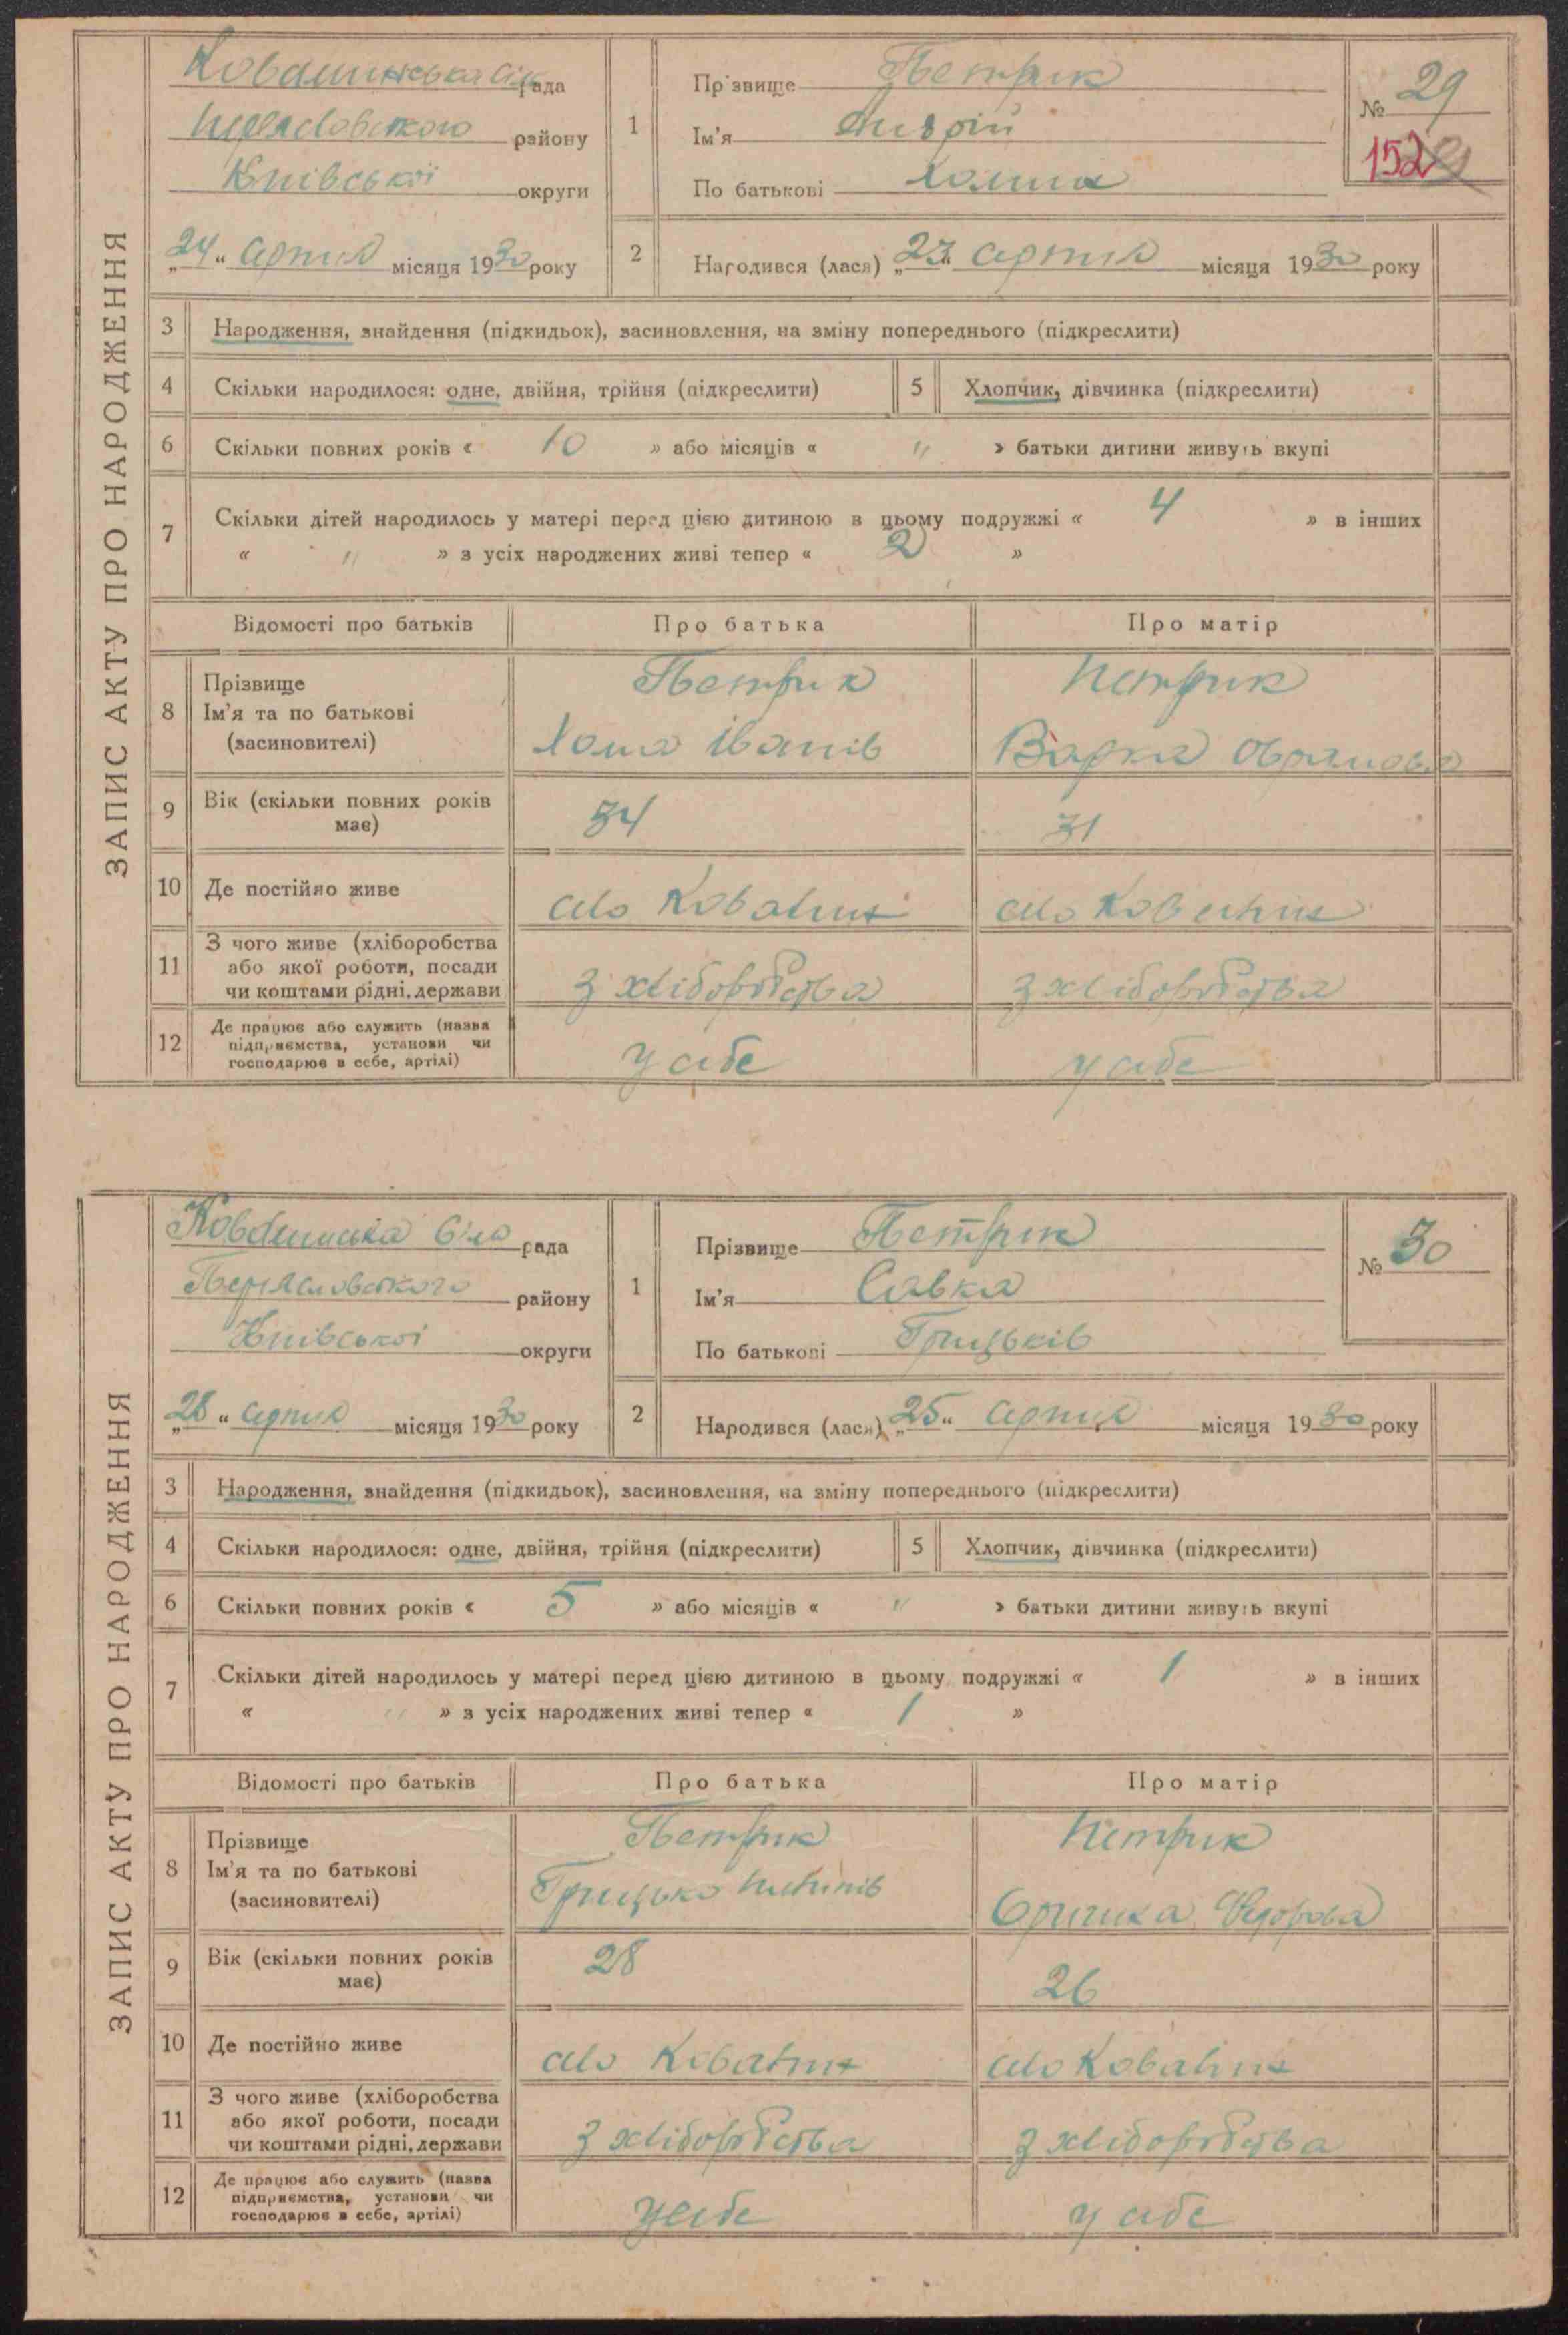 ЗАПИС АКТУ ПРО НАРОДЖЕННЯ
Ковалинська сіл рада
району
Київської округи
„24“ серпня місяця 1930 року
1
Прізвище Петрик
Ім'я Андрій
По батькові Хомин
№ 29
152
2 Народився (лася) „23“ серпня місяця 1930 року
3 Народження, знайдення (підкидьок), засиновлення, на зміну попереднього (підкреслити)
4 Скільки народилося: одне, двійня, трійня (підкреслити) 5 Хлопчик, дівчинка (підкреслити)
6 Скільки повних років « 10 » або місяців « " » батьки дитини живуть вкупі
7 Скільки дітей народилось у матері перед цією дитиною в цьому подружжі « 4 » в інших
« " » з усіх народжених живі тепер « 2 »
Відомості про батьків Про батька Про матір
8 Прізвище
Ім'я та по батькові
(засиновителі)
Петрик
Хома Іванів
Петрик
Варка
9 Вік (скільки повних років має) 34 31
10 Де постійно живе село Ковалин село Ковалин
11 З чого живе (хліборобства
або якої роботи, посади
чи коштами рідні, держави
з хліборобства з хліборобства
12 Де працює або служить (назва
підприємства, установи чи
господарює в себе, артілі)
у себе у себе
ЗАПИС АКТУ ПРО НАРОДЖЕННЯ
Ковалинська сіл рада
Переяславського району
Київської округи
„28“ серпня місяця 1930 року
1
Прізвище Петрик
Ім'я Савка
По батькові Грицьків
№ 30
2 Народився (лася) „25“ серпня місяця 1930 року
3 Народження, знайдення (підкидьок), засиновлення, на зміну попереднього (підкреслити)
4 Скільки народилося: одне, двійня, трійня (підкреслити) 5 Хлопчик, дівчинка (підкреслити)
6 Скільки повних років « 5 » або місяців « " » батьки дитини живуть вкупі
7 Скільки дітей народилось у матері перед цією дитиною в цьому подружжі « 1 » в інших
« " » з усіх народжених живі тепер « 1 »
Відомості про батьків Про батька Про матір
8 Прізвище
Ім'я та по батькові
(засиновителі)
Петрик
Грицько
Петрик
Оришка Федорова
9 Вік (скільки повних років має) 28 26
10 Де постійно живе село Ковалин село Ковалин
11 З чого живе (хліборобства
або якої роботи, посади
чи коштами рідні, держави
з хліборобства з хліборобства
12 Де працює або служить (назва
підприємства, установи чи
господарює в себе, артілі)
у себе у себе